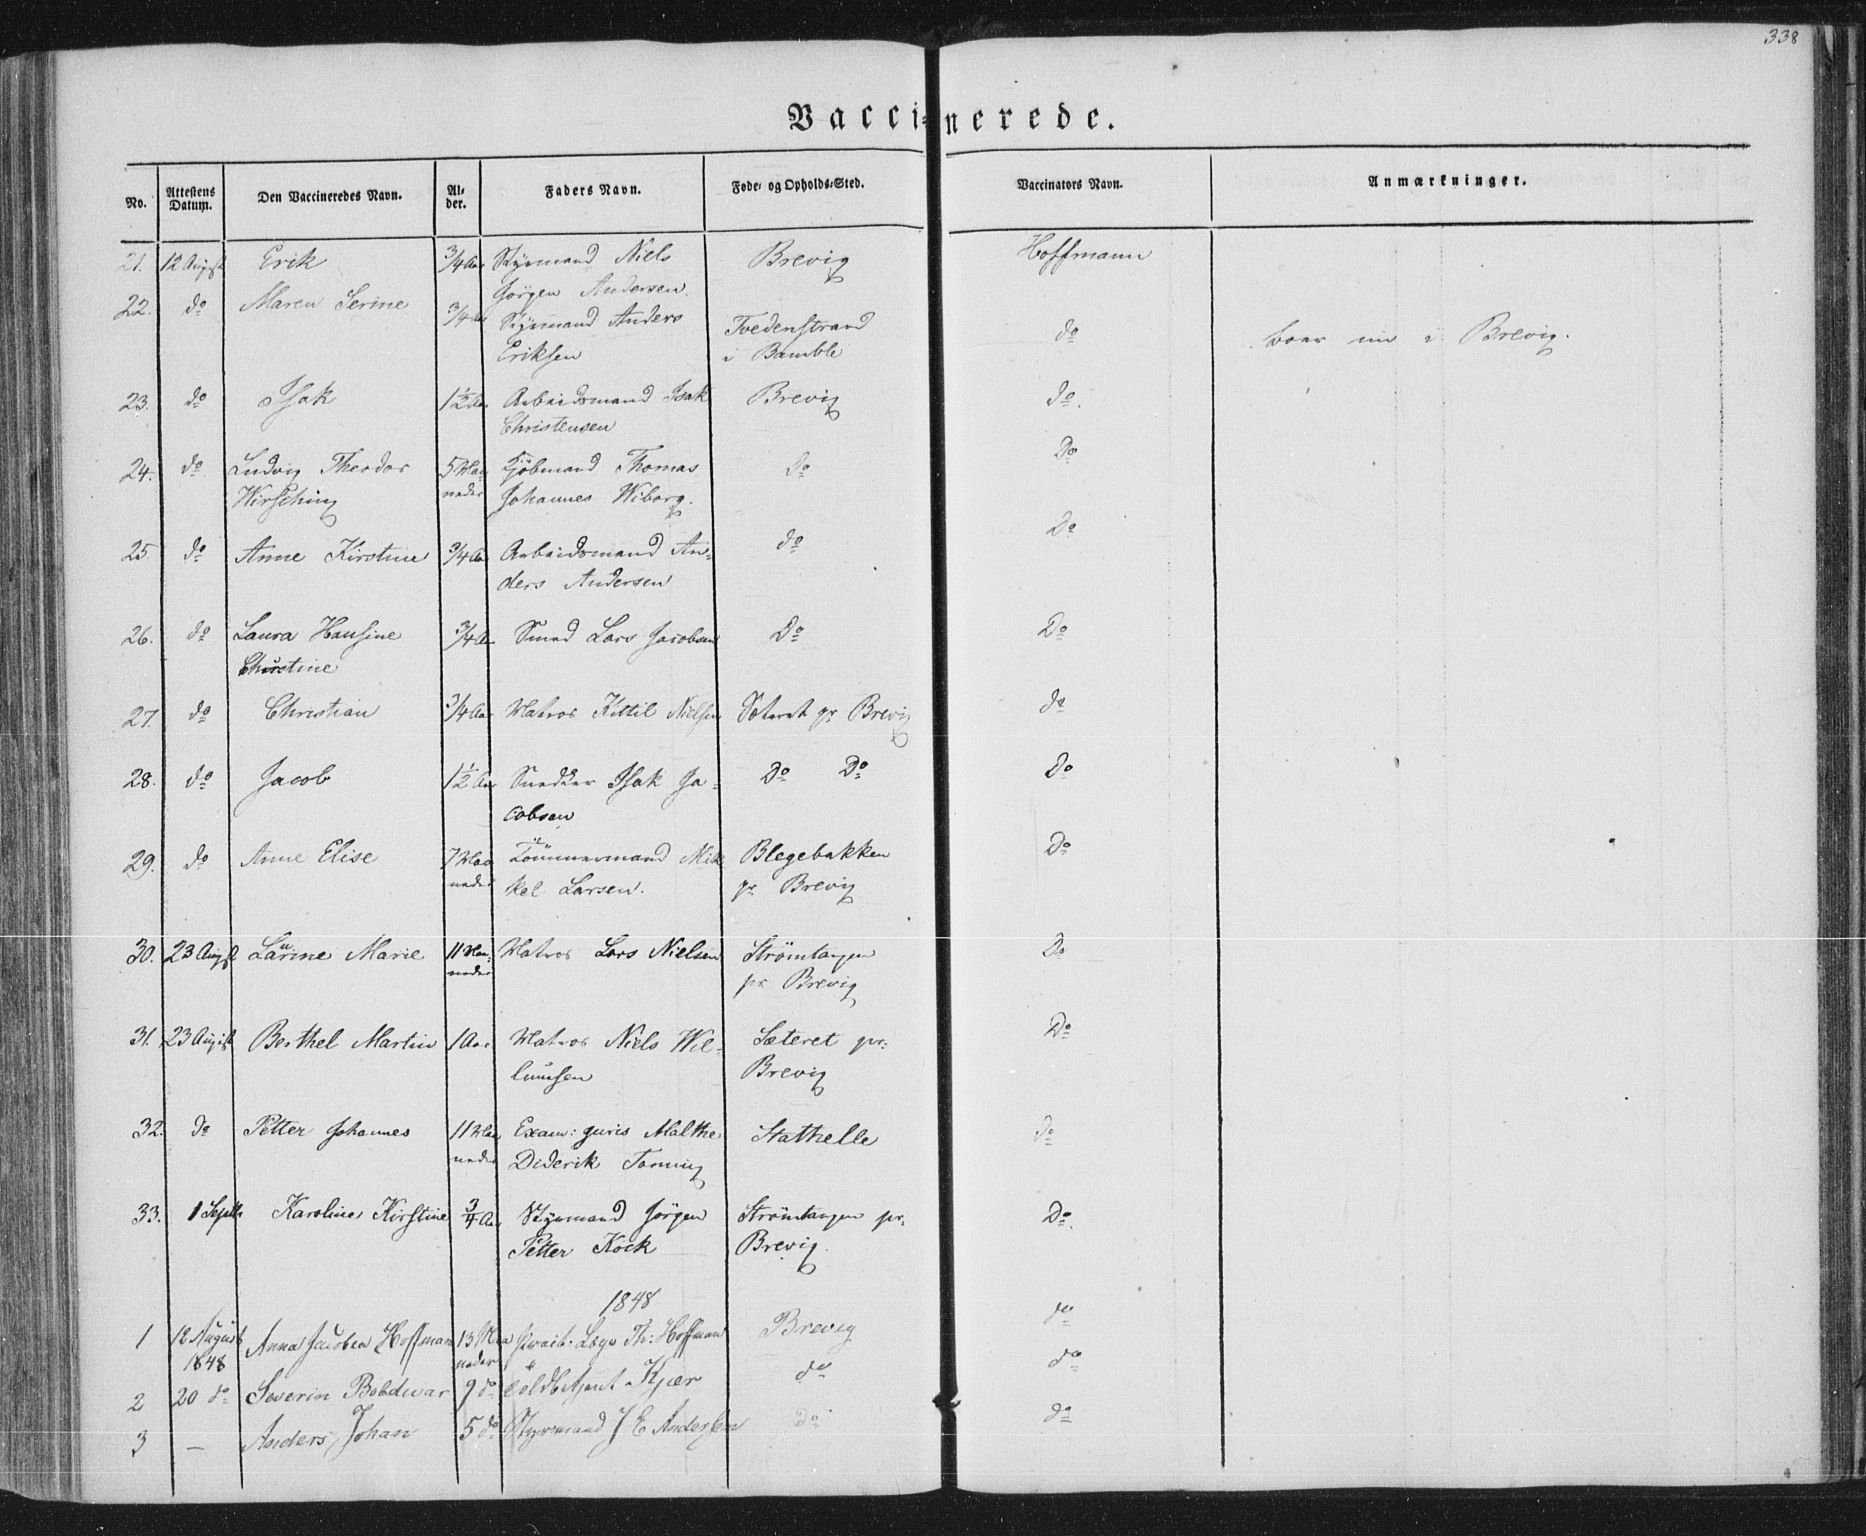 338
Vaccinerede.
No. Attestens Datum. Den Vaccineredes Navn. Alder. Faders Navn. Føde- og Opholds-Sted. Vaccinators Navn. Anmærkninger.
21. 12 August Erik 3/4 Aar Styrmand Niels Brevig Hoffmann
Jörgen Andersen.
22. do Maren Serine 3/4 Aar Styrmand Anders Tvedenstrand do boer nu i Brevig.
Eriksen i Bamble
23. do Isak 1 1/2 Aar Arbeidsmand Isak Brevig do.
Christensen
24. do Ludvig Theodor 5 Maa- Kjöbmand Thomas do Do
Wirsching neder Johannes Wiborg.
25. do Anne Kirstine 3/4 Aar Arbeidsmand An- do Do
ders Andersen
26. do Laura Hansine 3/4 Aar Smed Lars Jacobsen Do Do
Christine
27. do Christian 3/4 Aar Matros Kittil Nielsen Sæteret pr Brevig do
28. do Jacob 1 1/2 Aar Snedker Isak Ja- Do Do Do
cobsen
29. do Anne Elise 7 Maa Tömmermand Mik- Blegebakken Do
neder kel Larsen. pr Brevig
30. 23 August Laurine Marie 11 Maa- Matros Lars Nielsen Strömtangen Do
neder pr. Brevig
31. 23 August Berthel Martin 1 Aar Matros Niels Wil- Sæteret pr. Do
lumsen Brevig
32. do Petter Johannes 11 Maa Exam: juris Malthe Stathelle do
neder Diderik Tönning
33. 1 Septbr Karoline Kirstine 3/4 Aar Styrmand Jörgen Strömtangen pr. Do.
Petter Kock Brevig.
1848
1 12 August Anna Jacobea Hoffman 13 Maa Læge Th: Hoffman Brevig do
1848 neder
2 20 do Severin 9 do Kjær do do
3 — Anders Johan 5 do Styrmand J E Anderssen do do